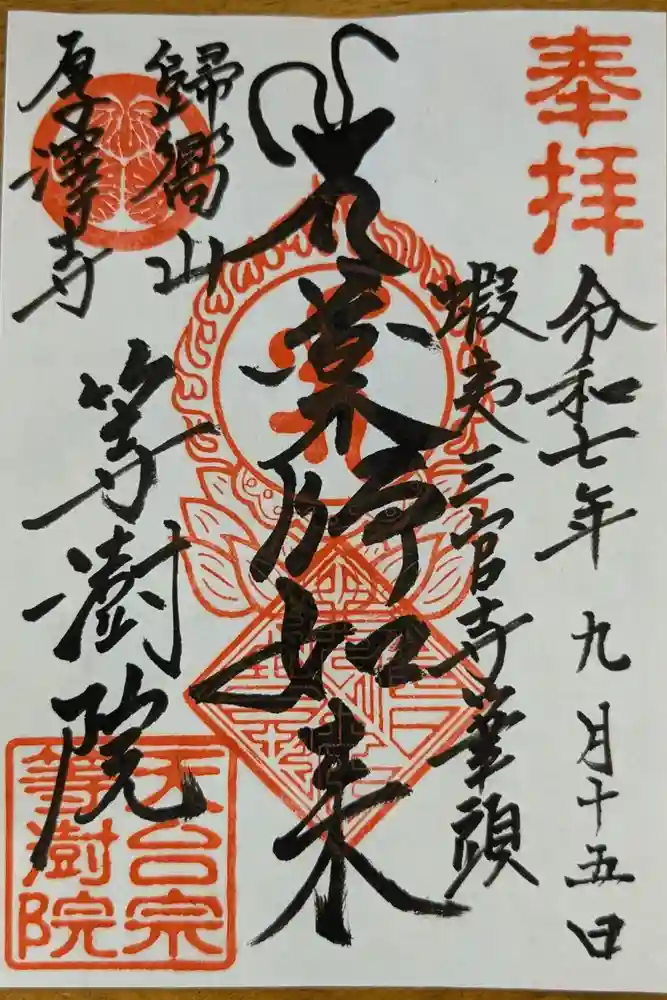 奉拝
令和七年 九月十五日
蝦夷三官寺筆頭
薬師如来
歸嚮山
厚澤寺
等澍院
天台宗
等澍院